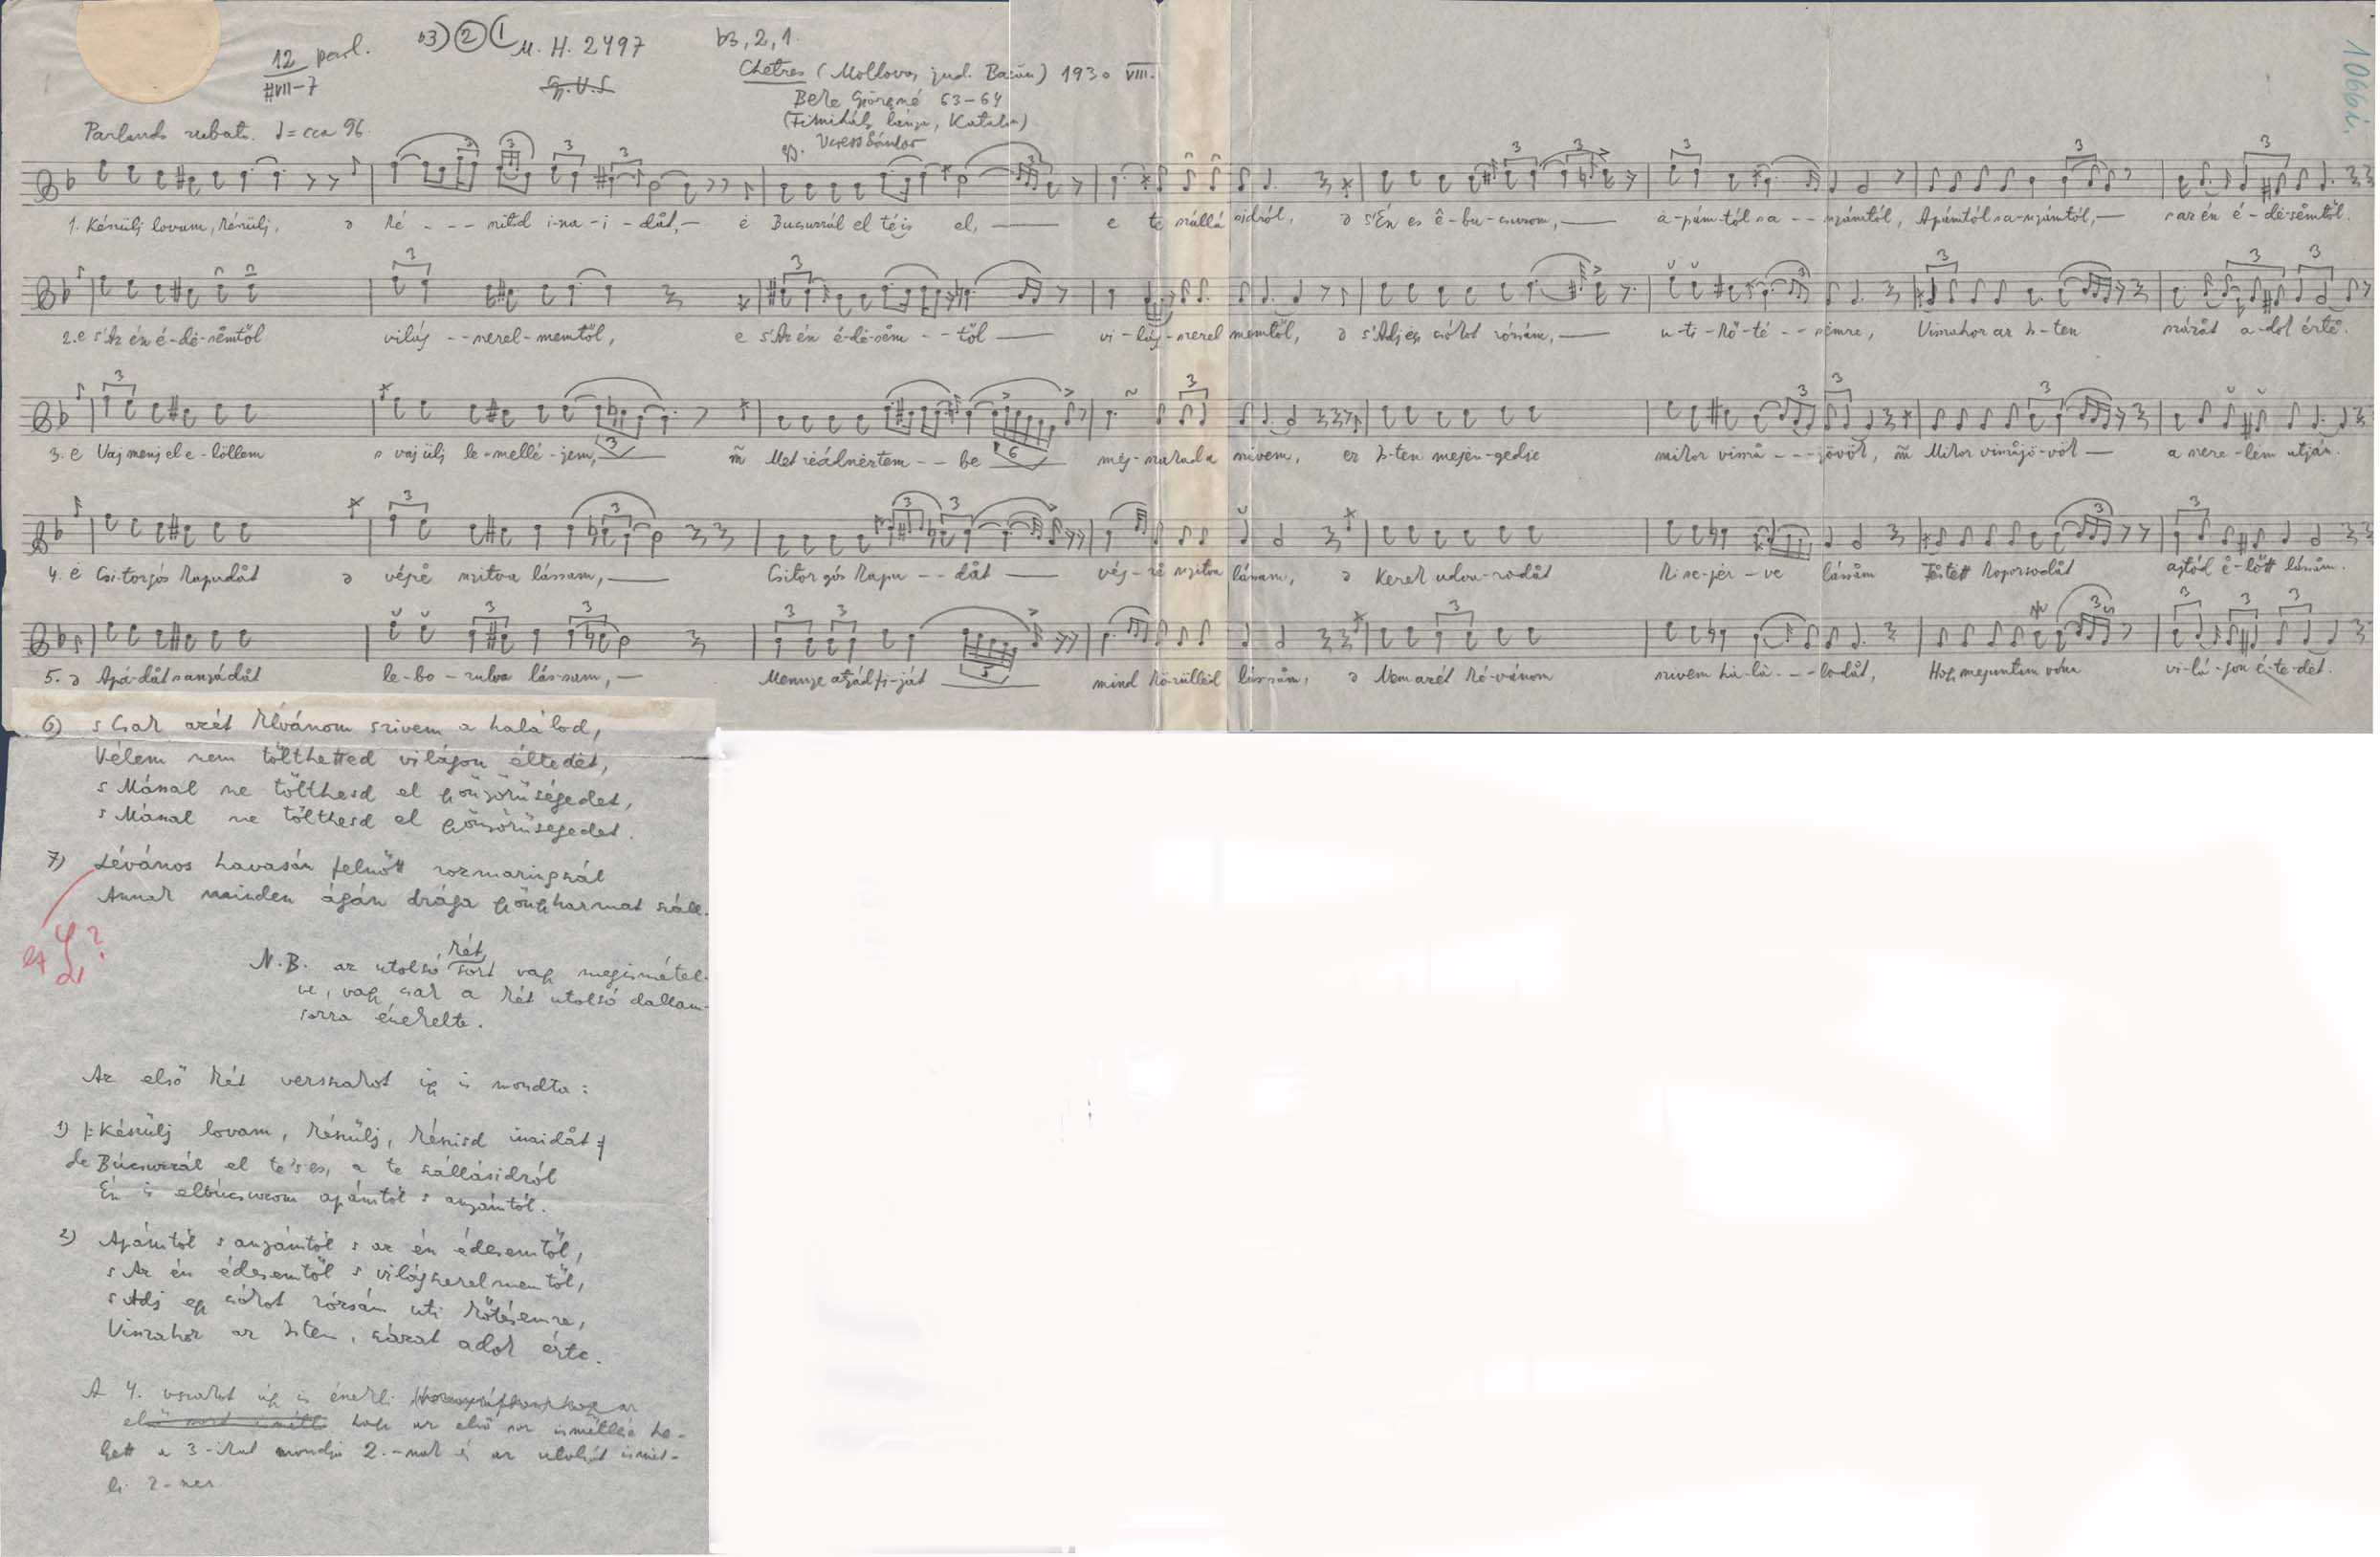 12 parl.
VII-7
b3) 2 (1
M. H. 2497
b3, 2, 1.
1066i.
Chetres (Moldova, jud. Bacău) 1930 VIII.
63-64
Katalin)
gy. Veress Sándor
Parlando rubato. = cca 96.
1. Készülj lovam, készülj, ə ké - - - szitsd i-na-i-dåt, e Bucsuzzál el téis el, e te szállá sidról, ə s'Én es ê-bu-csuzom, a-pám-tól sa - - nyámtól, Apámtól sa-nyámtól, s az én é-de-sëmtöl.
2. e s'Az én é-dë-sëmtöl világ - - szerel-memtöl, e s'Az én é-dë-sëm - - töl vi-lág-szerel memtöl, ə s'Adj egy csókot rózsám, u-ti-kö-té - - semre, Visszahoz az Is-ten százåt a-dok érte.
3. e Vaj menj el e-löllem s vaj ülj le-mellé-jem, Met reád néztem - - be még-szakada szivem, ez Is-ten megën-gedje mikor visszå - - - jövök, Mikor visszåjö-vök a szere-lëm utján.
4. e Csikorgós kapudåt ə végrё nyitva lássam, Csikorgós kapu - - dåt vég-rё nyitva lássam, ə Kerek udva-rodåt ki se-jër-ve lássåm Fëstëtt koporsodåt ajtód ë-lött lássåm.
5. ə Apá-dåt sanyádåt le-bo-rulva lás-sam, Mennye atyád fi-ját mind kö-rülléd lás-såm, ə Nem azét ké-vánom szivem ha-lá - - - lodåt, Hogy meguntam vóna vi-lá-gon é-te-dët.
6) s Csak azét kivánom szivem a halálod,
Vélem nem tölthetted világon éltedët,
s Mással ne tölthesd el gyönyörüségedet,
s Mással ne tölthesd el gyönyörüségedet.
7) Lévános havasán felnött rozmaringszál
Annak minden ágán drága gyöngyharmat száll.
ez L?
N.B. az utolsó két sort vagy megismétel-
ve, vagy csak a két utolsó dallam-
sorra énekelte.
Az elsö két verszakot igy is mondta:
1) |: Készülj lovam, készülj, készisd inaidåt :|
de Búcsuzzál el te's es, a te szállásidról
Én is elbúcsuzom apámtól s anyámtól.
2) Apámtól s anyámtól s az én édesemtöl,
s Az én édesemtöl s világszerelmemtöl,
s Adj egy csókot rózsám uti kötésemre,
Visszahoz az Isten, százat adok érte.
A 4. vszakot úgy is énekli
hogy az elsö sor ismétlése he-
lyett a 3-ikat mondja 2.-nak és az utolsót ismét-
li 2-szer